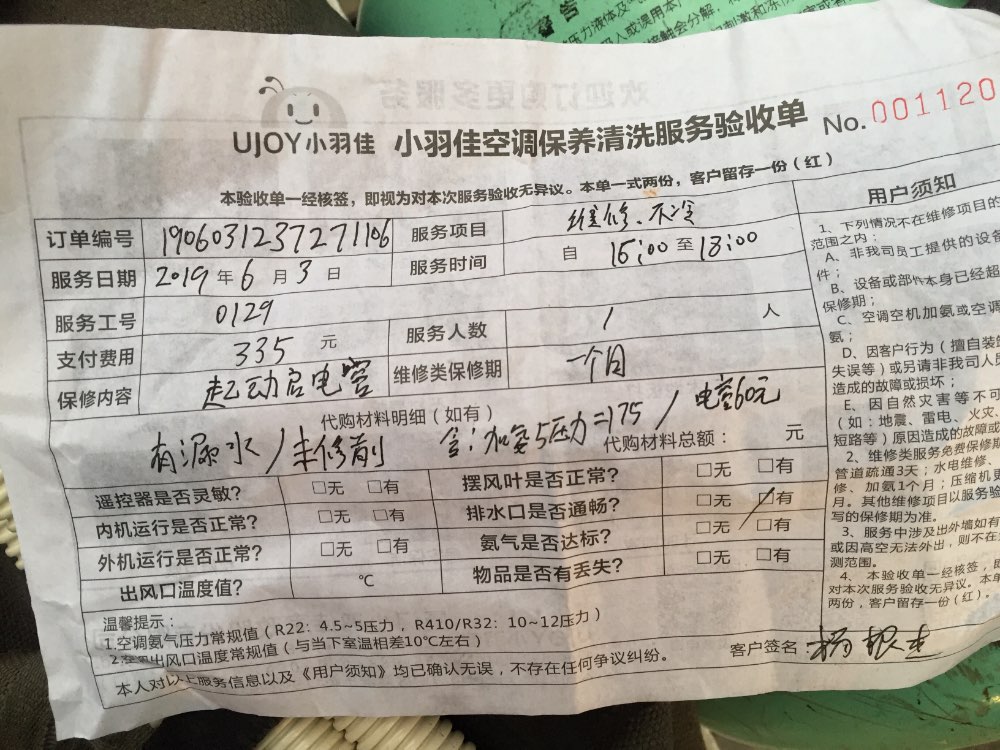 警告
欢迎订购更多服务
UJOY小羽佳 小羽佳空调保养清洗服务验收单 No. 001120
本验收单一经核签，即视为对本次服务验收无异议。本单一式两份，客户留存一份（红）
订单编号 1906031237271106 服务项目 维修、不冷
服务日期 2019 年 6 月 3 日 服务时间 自 16:00 至 18:00
服务工号 0129
支付费用 335 元 服务人数 1 人
保修内容 起动启电容 维修类保修期 一个月
代购材料明细（如有）
有漏水/未修前 含：加氨5压力=175 / 电容60元
代购材料总额： 元
遥控器是否灵敏? □无 □有 摆风叶是否正常? □无 □有
内机运行是否正常? □无 □有 排水口是否通畅? □无 □有
外机运行是否正常? □无 □有 氨气是否达标? □无 □有
出风口温度值? ℃ 物品是否有丢失? □无 □有
温馨提示：
1.空调氨气压力常规值（R22：4.5~5压力，R410/R32：10~12压力）
出风口温度常规值（与当下室温相差10℃左右）
本人对以上服务信息以及《用户须知》均已确认无误，不存在任何争议纠纷。
客户签名：杨根生
用户须知
1、下列情况不在维修项目的
范围之内：
A、非我司员工提供的设备
件；
B、设备或部件本身已经超
保修期；
C、空调空机加氨或空调
氨；
D、因客户行为（擅自装
失误等）或另请非我司人员
造成的故障或损坏；
E、因自然灾害等不可
（如：地震、雷电、火灾
短路等）原因造成的故障或
2、维修类服务免费保修期
管道疏通3天；水电维修、
修、加氨1个月；压缩机更
月。其他维修项目以服务验
写的保修期为准。
3、服务中涉及出外墙如有
或因高空无法外出，则不在
测范围。
4、本验收单一经核签，即
对本次服务验收无异议。本单
两份，客户留存一份（红）。